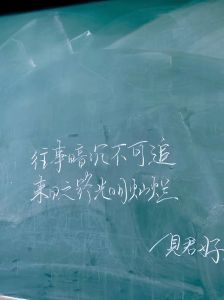 往事暗沉不可追
来日之路光明灿烂
見君好